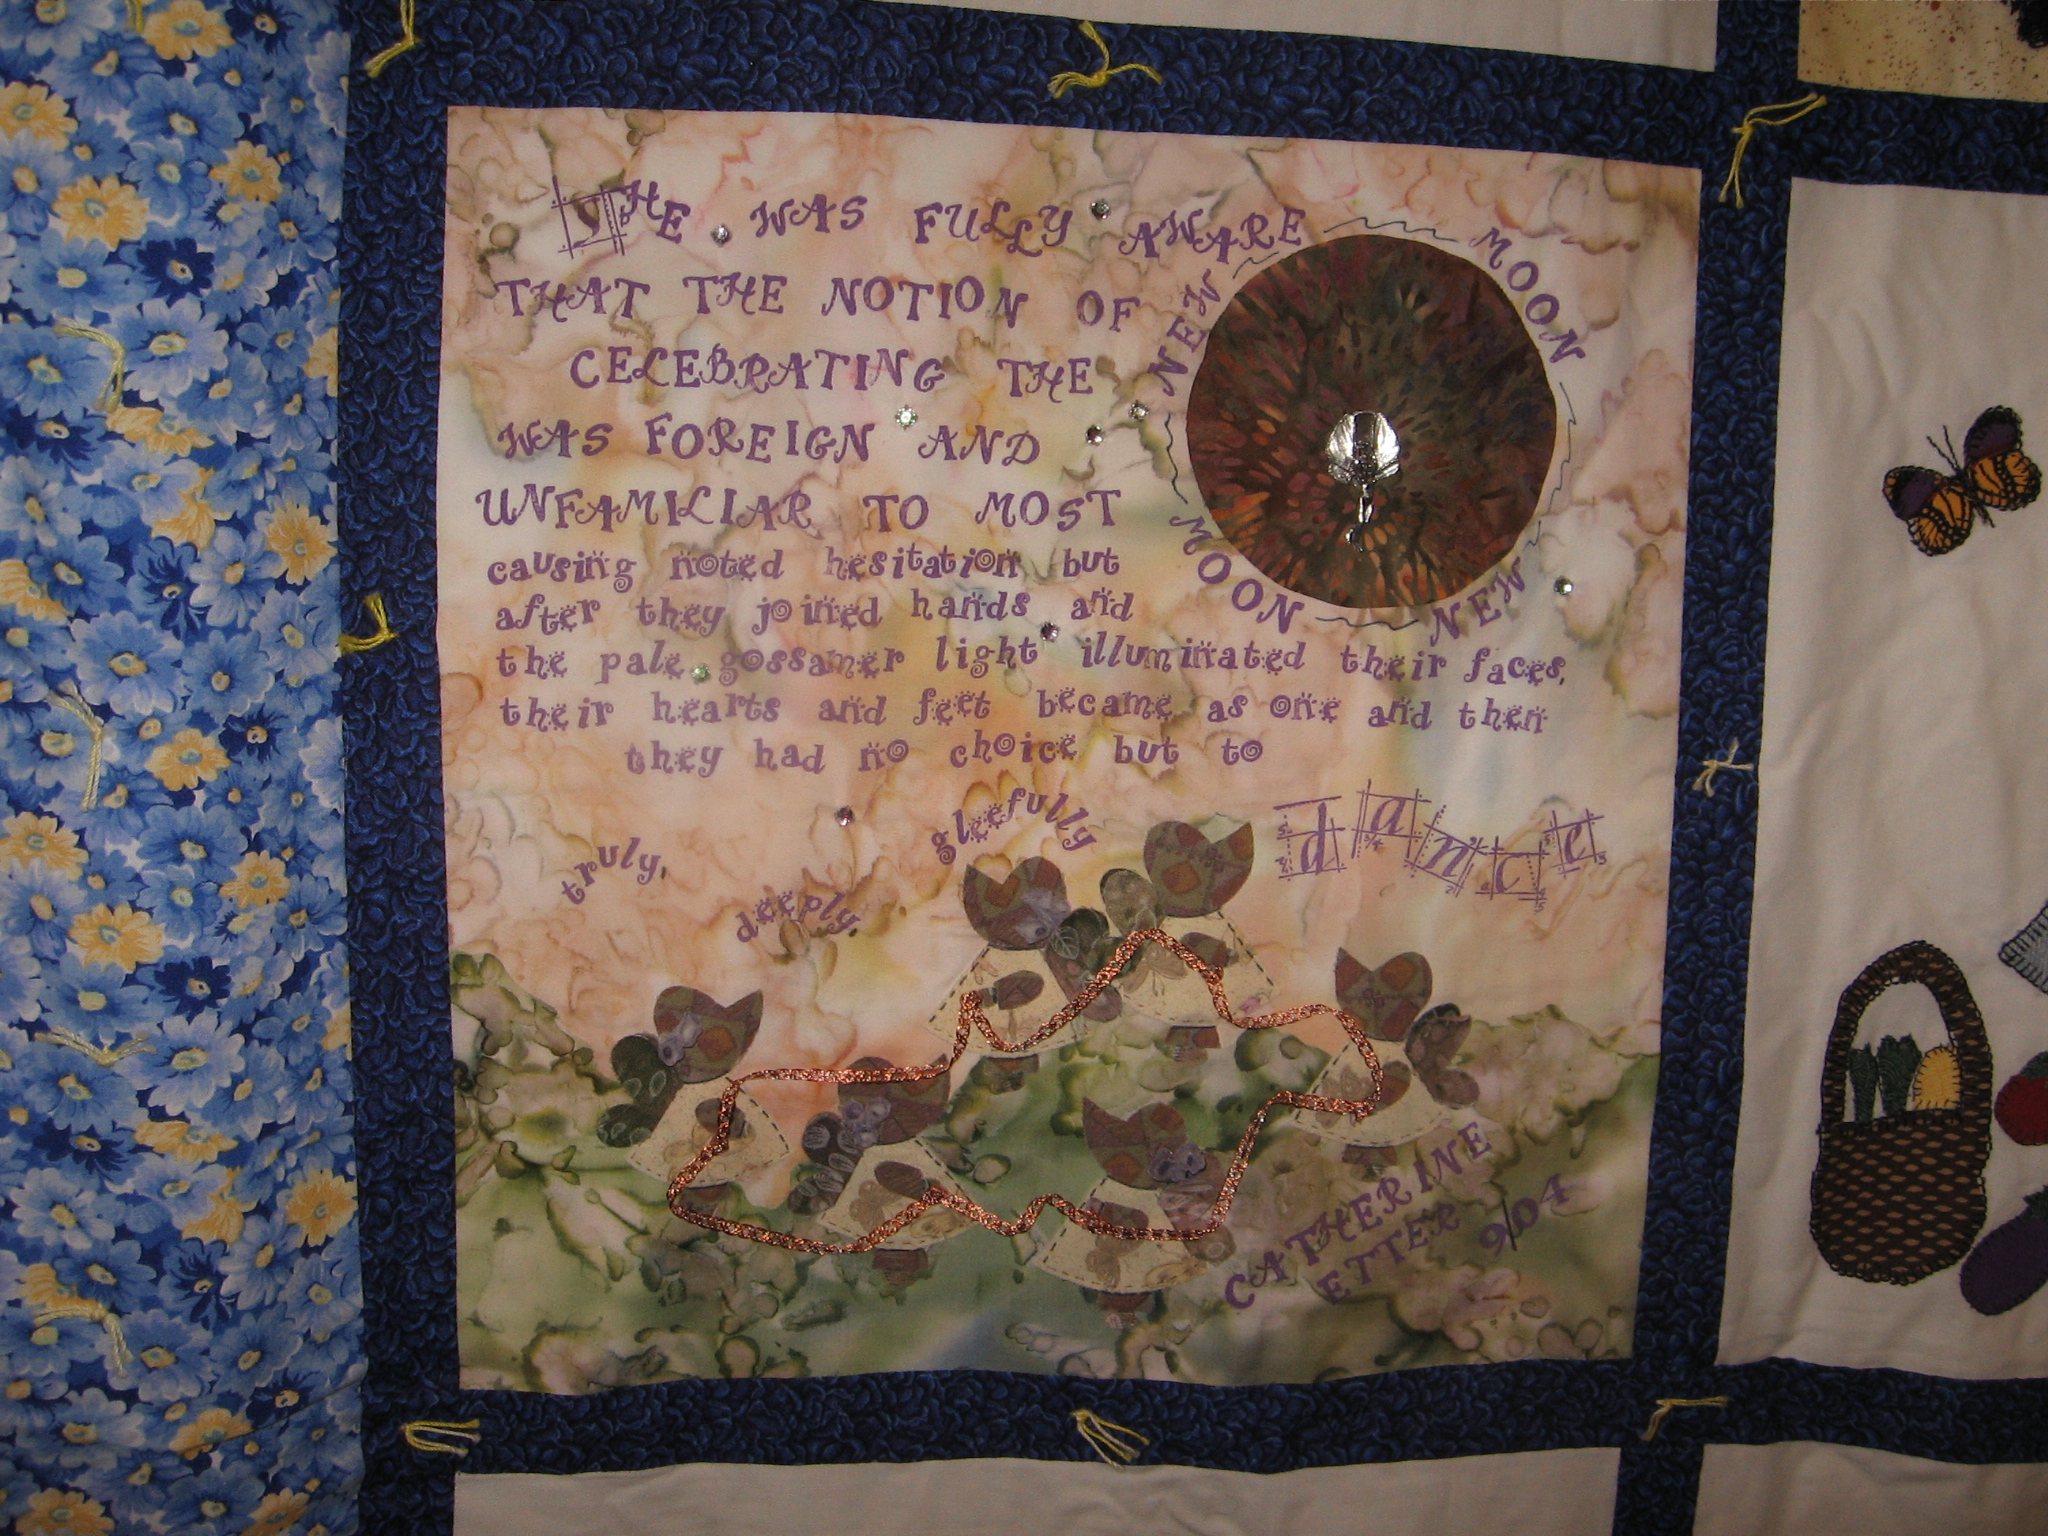 SHE WAS FULLY AWARE
THAT THE NOTION OF
CELEBRATING THE
NEW MOON
NEW MOON
WAS FOREIGN AND
UNFAMILIAR TO MOST
causing noted hesitation but
after they joined hands and
the pale gossamer light illuminated their faces,
their hearts and feet became as one and then
they had no choice but to
truly,
deeply,
gleefully
dance
CATHERINE
ETTER 9/04